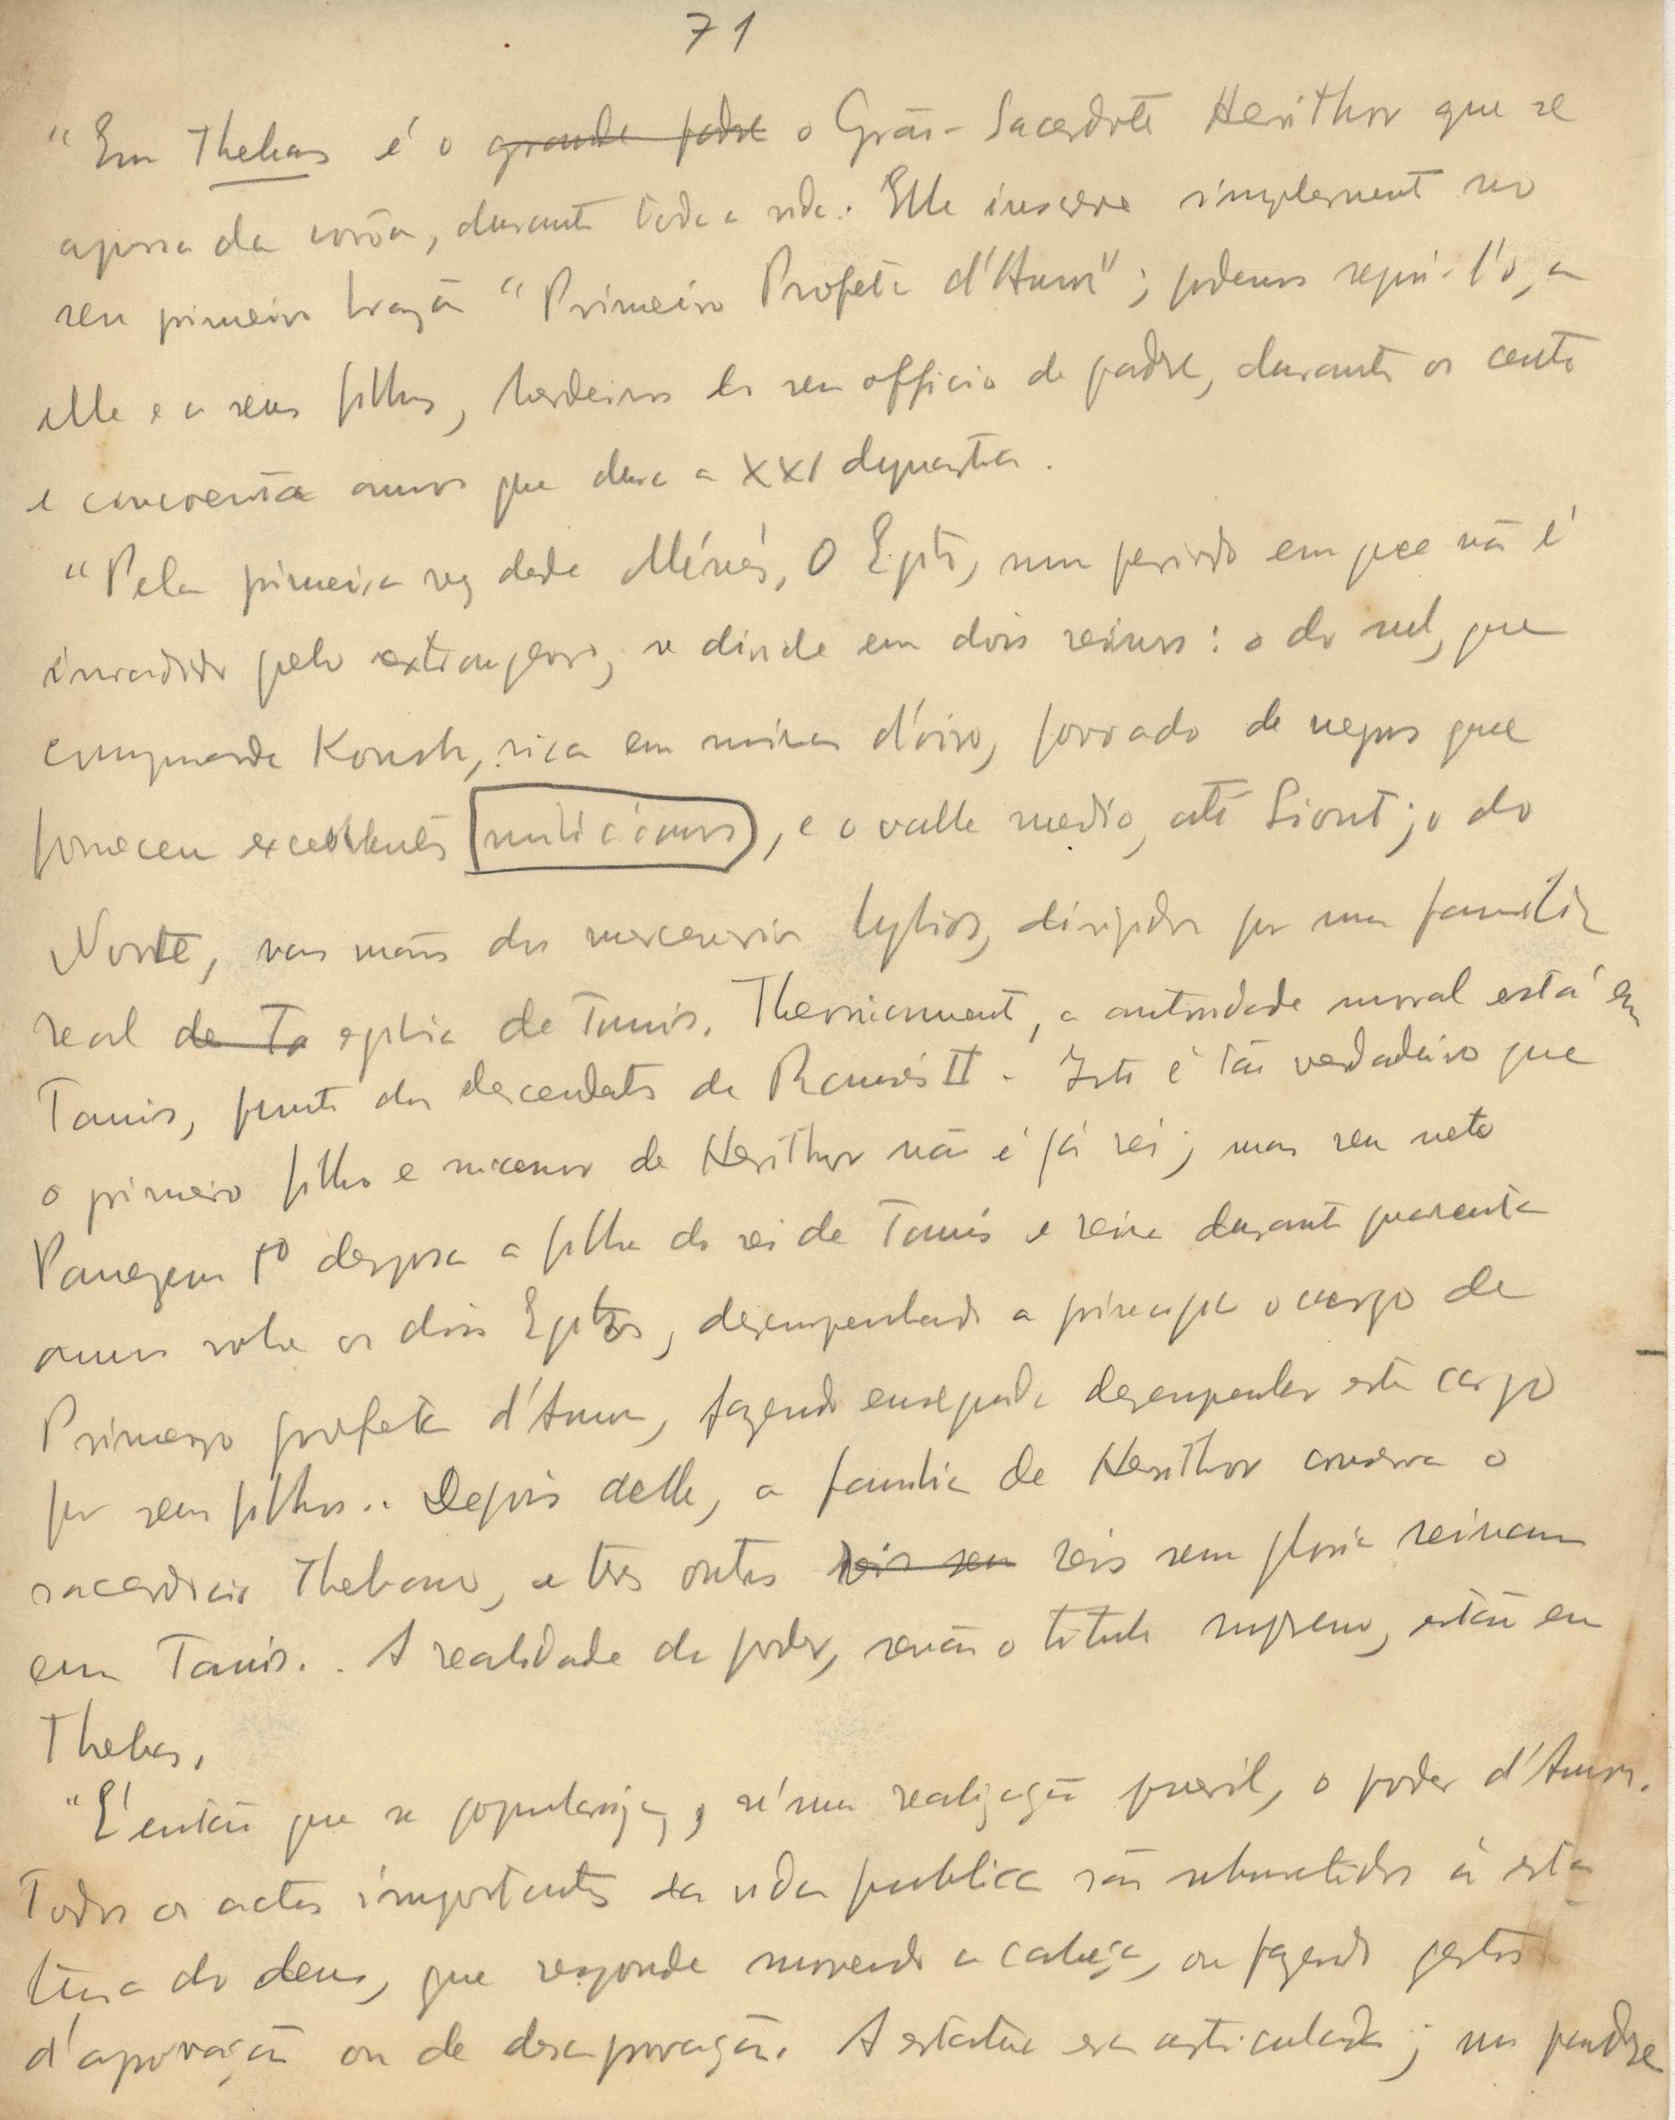 71
"Em Thebas é o grande padre o Grão-Sacerdote Herithor que se
apossa da corôa, durante toda a vida. Elle inscreve simplesmente no
seu primeiro brazão "Primeiro Profeta d'Amon"; podemos seguil-o, a
elle e a seus filhos, herdeiros do seu officio de padre, durante os cento
e cincoenta annos que dura a XXI dynastia.
"Pela primeira vez desde Ménès, O Egito, num periodo em que não é
invadido pelo extrangeiro, se divide em dois reinos: o do sul, que
comprende Koush, rica em minas d'oiro, povoado de negros que
fornecem excellentes milicianos, e o valle medio, até Siout; o do
Norte, nas mãos dos mercenarios lybios, dirigidos por uma familia
real de Ta egypcia de Tanis. Theoricament, a autoridade moral está em
Tanis, junto dos descendentes de Ramsés II. Isto é tão verdadeiro que
o primeiro filho e successor de Herithor não é já rei; mas seu neto
desposa a filha do rei de Tanis e reina durante quarenta
annos sobre os dois Egitos, desempenhando a principio o cargo de
Primeiro profeta d'Amon, fazendo em seguida desempenhar este cargo
por seus filhos.. Depois delle, a familia de Herithor conserva o
sacerdocio Thebano, e tres outros reis sem reis sem gloria reinam
em Tanis.. A realidade do poder, senão o titulo supremo, estão em
Thebas.
"É então que se populariza, n'uma realização pueril, o poder d'Amon.
Todos os actos importantes da vida publica são submetidos á esta-
tua do deus, que responde movendo a cabeça, ou fazendo gestos
d'aprovação ou de desaprovação. A estatua era articulada; um padre